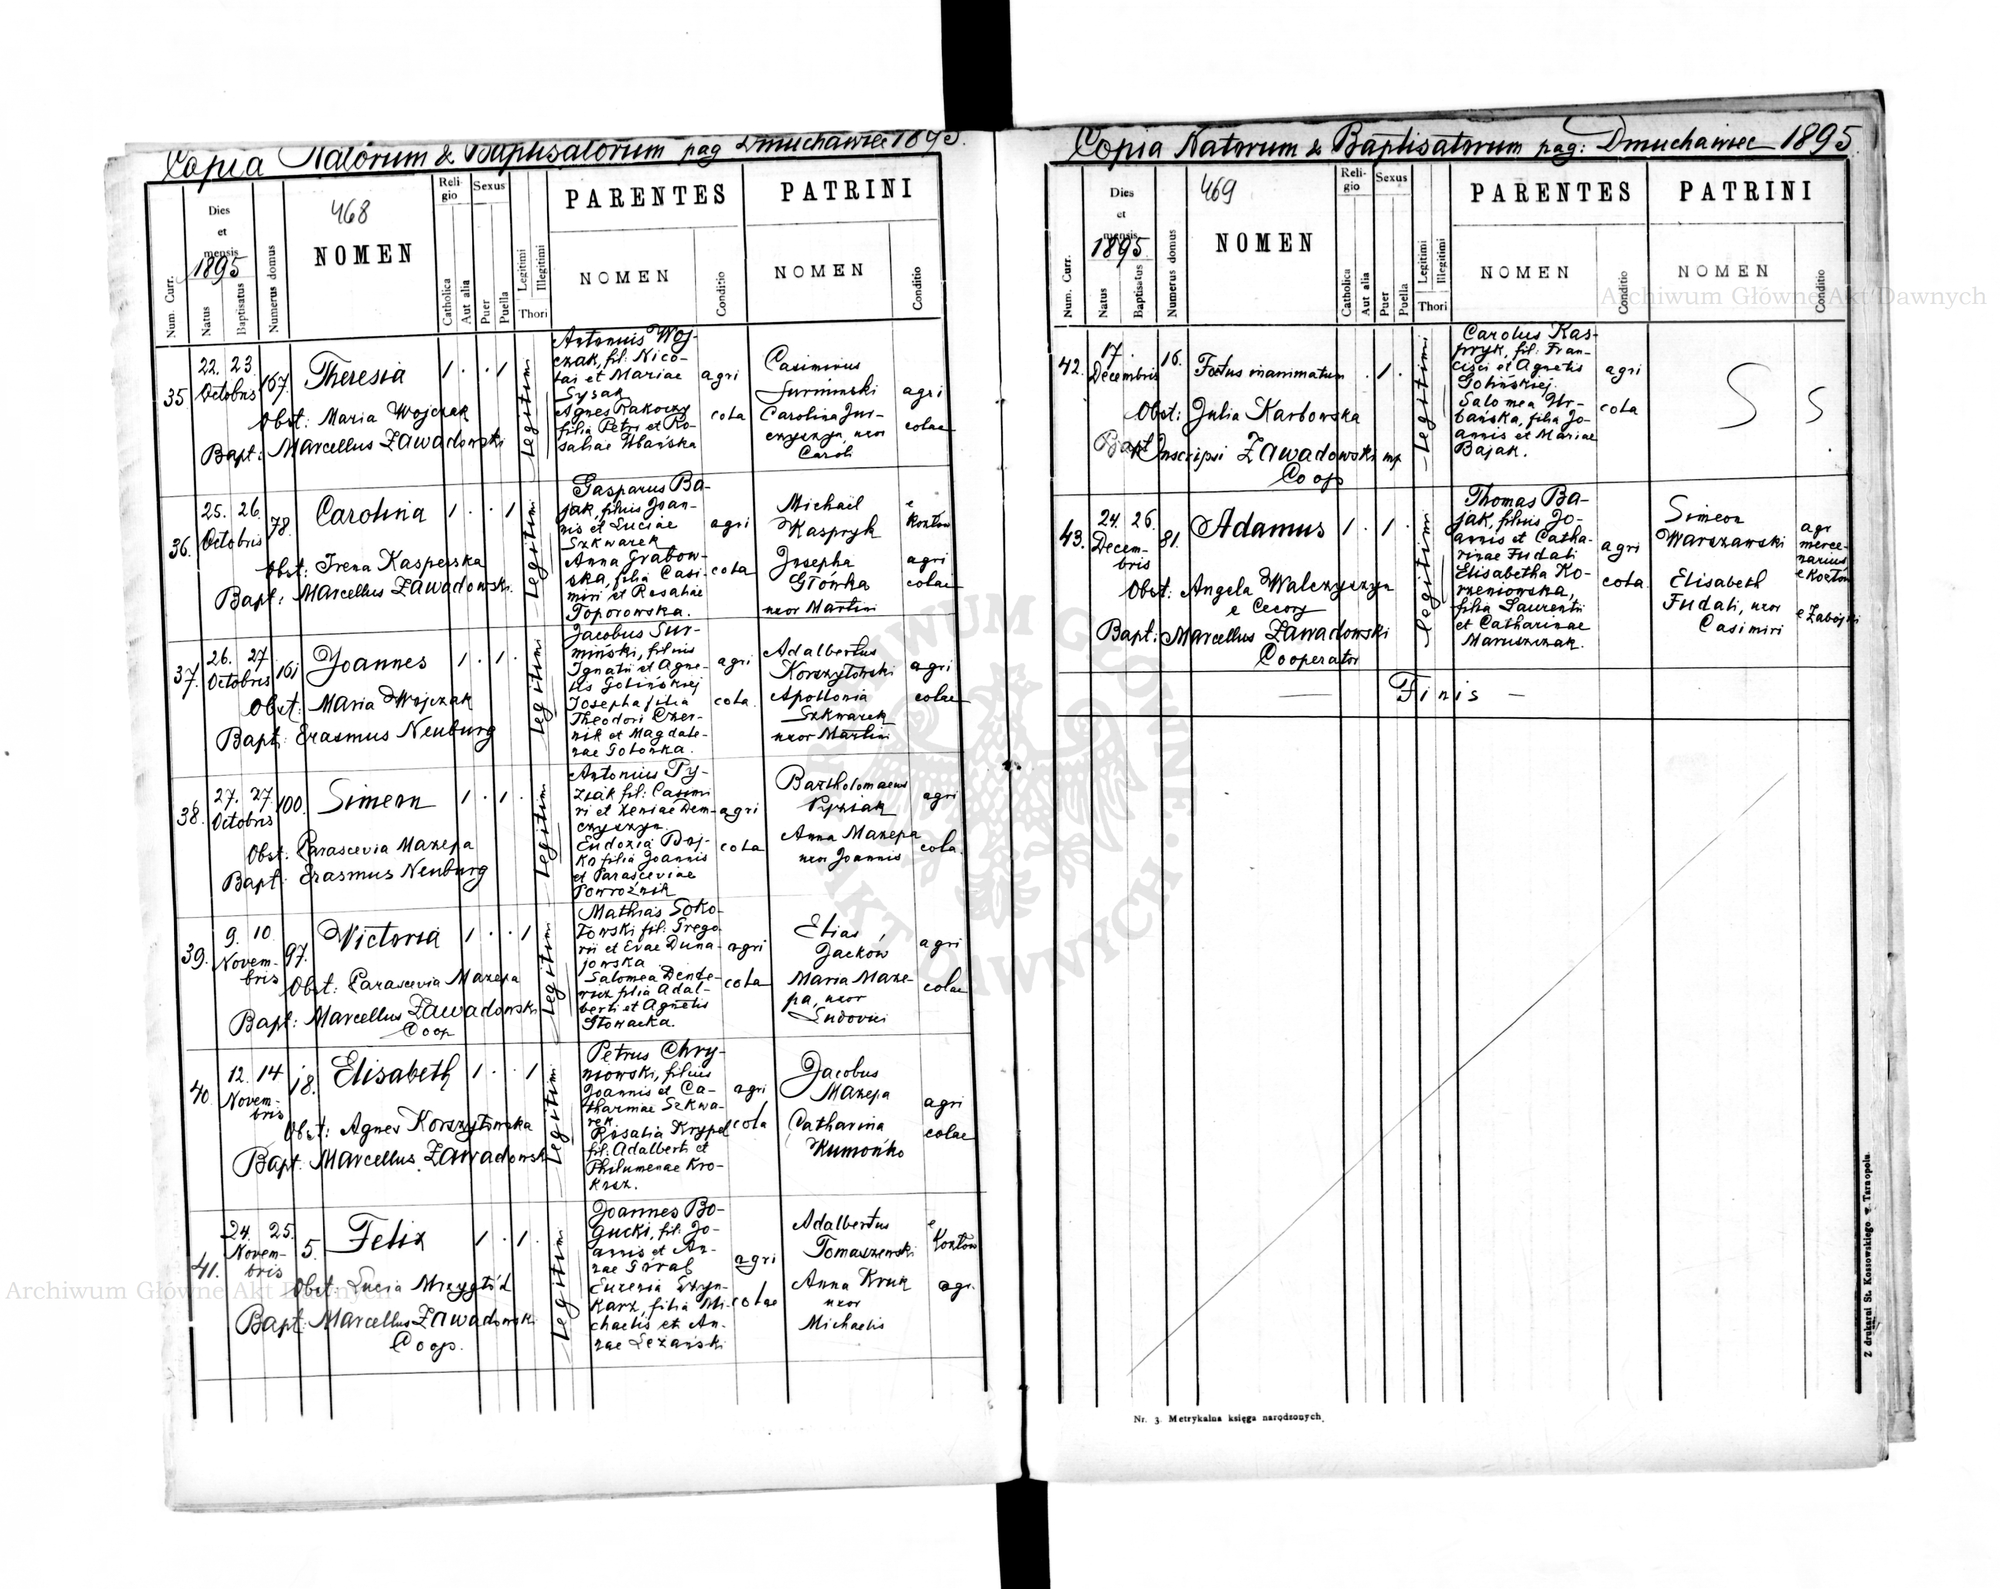 Copia Natorum & Baptisatorum pag Dmuchawiec 1895.
Num. Curr.
Dies
et
mensis
1895
Natus
Baptisatus
Numerus domus
468
NOMEN
Religio
Catholica
Aut alia
Sexus
Puer
Puella
Legitimi
Illegitimi
Thori
PARENTES
NOMEN
Conditio
PATRINI
NOMEN
Conditio
35
22. 23.
Octobris
167.
Theresia
1 . . 1
Obst: Maria Wojczak
Bapt: Marcellus Zawadowski
Legitimi
Antonius Woj-
czak, fil: Nico-
lai et Mariae
Sysak
Agnes Rakoczy
filia Petri et Ro-
saliae Ubańska
agri
cola
Casimirus
Surminski
Carolina Jur-
czyszyn, uxor
Caroli
agri
colae
36.
25. 26.
Octobris
78.
Carolina
1 . . 1
Obst: Irena Kasperska
Bapt: Marcellus Zawadowski.
Legitimi
Gasparus Ba-
jak, filius Joan-
nis et Luciae
Szkwarek
Anna Grabow-
ska, filia Casi-
miri et Rosaliae
Toporowska.
agri
cola
Michael
Kaspryk
Josepha
Główka
uxor Martini
e
Kozłow
agri
colae
37.
26. 27
Octobris
161
Joannes
1 . 1 .
Obst: Maria Wojczak
Bapt: Erasmus Neuburg
Legitimi
Jacobus Sur-
miński, filius
Ignatii et Agne-
tis Golińskiej
Josepha filia
Theodori Czer-
nik et Magdale-
nae Gotońka.
agri
cola.
Adalbertus
Korszyłowski
Apollonia
Szkwarek
uxor Martini
agri
colae
38.
27. 27.
Octobris
100.
Simeon
1 . 1 .
Obst: Parascevia Mazepa
Bapt: Erasmus Neuburg
Legitimi
Antonius Py-
ziak fil: Casimi
ri et Xeniae Dem-
czyszyn.
Eudoxia Boj-
ko filia Joannis
et Parasceviae
Powroźnik
agri
cola
Bartholomaeus
Pyziak
Anna Mazepa
uxor Joannis
agri
cola.
39.
9. 10.
Novem-
bris
97.
Victoria
1 . . 1
Obst: Parascevia Mazepa
Bapt: Marcellus Zawadowski
Coop
Legitimi
Mathias Soko-
łowski fil: Grego
rii et Evae Duna-
jowska
Salomea Dende-
risz filia Adal-
berti et Agnetis
Słowacka.
agri
cola
Elias
Jacków
Maria Maze-
pa, uxor
Ludovici
agri
colae
40.
12. 14
Novem-
bris
18.
Elisabeth
1 . . 1
Obst: Agnes Korszyłowska
Bapt. Marcellus Zawadowski
Legitimi
Petrus Chry-
niowski, filius
Joannis et Ca-
tharinae Szkwa-
rek
Rosalia Krypel
fil: Adalberti et
Philumenae Kro-
kosz.
agri
cola
Jacobus
Mazepa
Catharina
Kumońko
agri
colae
41.
24. 25.
Novem-
bris
5.
Felix
1 . 1 .
Obst: Lucia Mrzygłód
Bapt: Marcellus Zawadowski
Coop.
Legitimi
Joannes Bo-
gucki, fil: Jo-
annis et An-
nae Góral
Eugenia Szyn-
karz, filia Mi-
chaelis et An-
nae Leżański
agri
colae
Adalbertus
Tomaszewski
Anna Kruk
uxor
Michaelis
e
Kozłow
agr.
Copia Natorum & Baptisatorum pag: Dmuchawiec 1895.
Num. Curr.
Dies
et
mensis
1895.
Natus
Baptisatus
Numerus domus
469
NOMEN
Religio
Catholica
Aut alia
Sexus
Puer
Puella
Legitimi
Illegitimi
Thori
PARENTES
NOMEN
Conditio
PATRINI
NOMEN
Conditio
42.
17.
Decembris
16.
Foetus inanimatum
. 1 .
Obst: Julia Karbowska
Inscripsi Zawadowski mp
Coop
Legitimi
Carolus Kas-
pryk, fil: Fran-
cisci et Agnetis
Golińskiej.
Salomea Ur-
bańska, filia Jo-
annis et Mariae
Bajak.
agri
cola
43.
24. 26.
Decem-
bris
81.
Adamus
1 . 1 .
Obst: Angela Walczyszyn
e Cecory
Bapt: Marcellus Zawadowski
Cooperator
Legitimi
Thomas Ba-
jak, filius Jo-
annis et Catha-
rinae Fudali
Elisabetha Ko-
rzeniowska,
filia Laurentii
et Catharinae
Maruszczak.
agri
cola.
Simeon
Warszawski
Elisabeth
Fudali, uxor
Casimiri
agr
merce-
narius
e Kozłow
e Zabojki
— Finis —
Nr. 3. Metrykalna księga narodzonych.
Z drukarni St. Kossowskiego w Tarnopolu.
Archiwum Główne Akt Dawnych
Archiwum Główne Akt Dawnych
ARCHIWUM GŁÓWNE AKT DAWNYCH